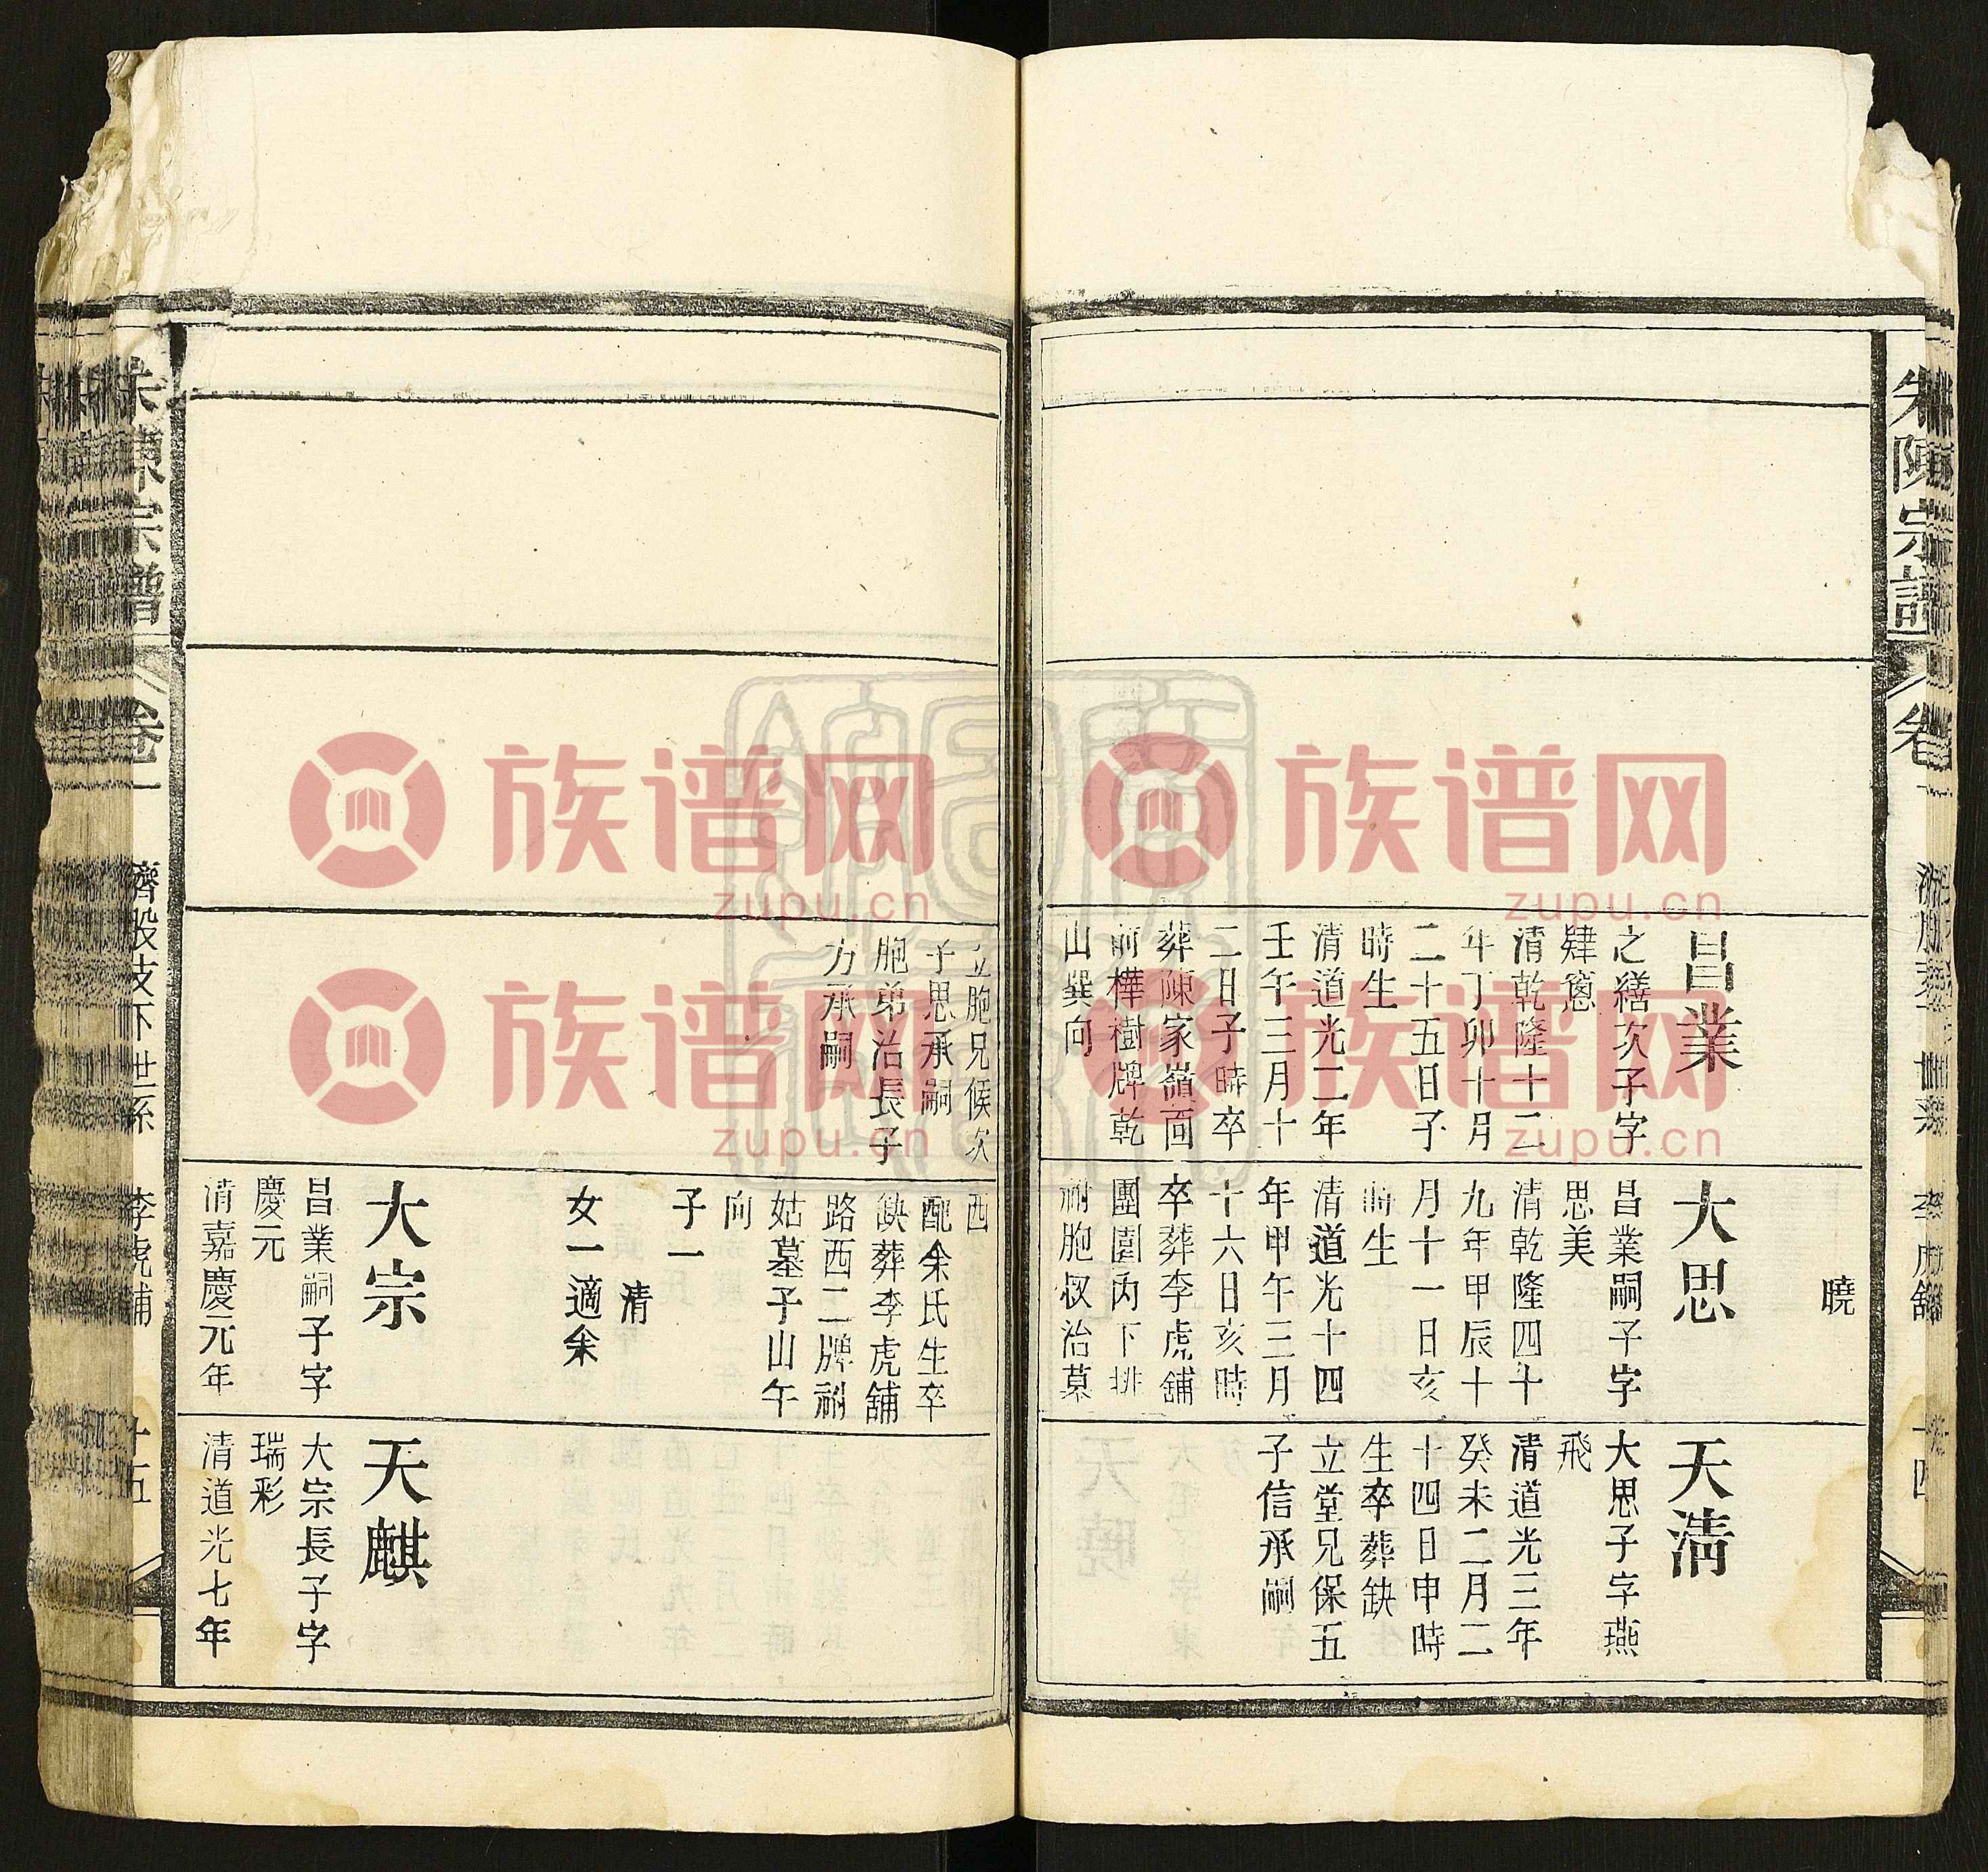 朱陳宗譜
卷一
李虎舖
十四
昌業
之繕次子字
肄窻
清乾隆十二
年丁卯十月
二十五日子
時生
清道光二年
壬午三月十
二日子時卒
葬陳家嶺面
前樺樹牌乾
山巽向
曉
大思
昌業嗣子字
思美
清乾隆四十
九年甲辰十
月十一日亥
時生
清道光十四
年甲午三月
十六日亥時
卒葬李虎舖
團園內下排
祔胞叔治墓
天清
大思子字燕
飛
清道光三年
癸未二月二
十四日申時
生卒葬缺
立堂兄保五
子信承嗣
立胞兄候次
子思承嗣
胞弟治長子
力承嗣
西
配余氏生卒
缺葬李虎舖
路西二牌祔
姑墓子山午
向
子一
清
女一適余
大宗
昌業嗣子字
慶元
清嘉慶元年
天麒
大宗長子字
瑞彩
清道光七年
朱陳宗譜
卷一
濟股支下世系
李虎舖
十五
族谱网
zupu.cn
族谱网
zupu.cn
族谱网
zupu.cn
族谱网
zupu.cn